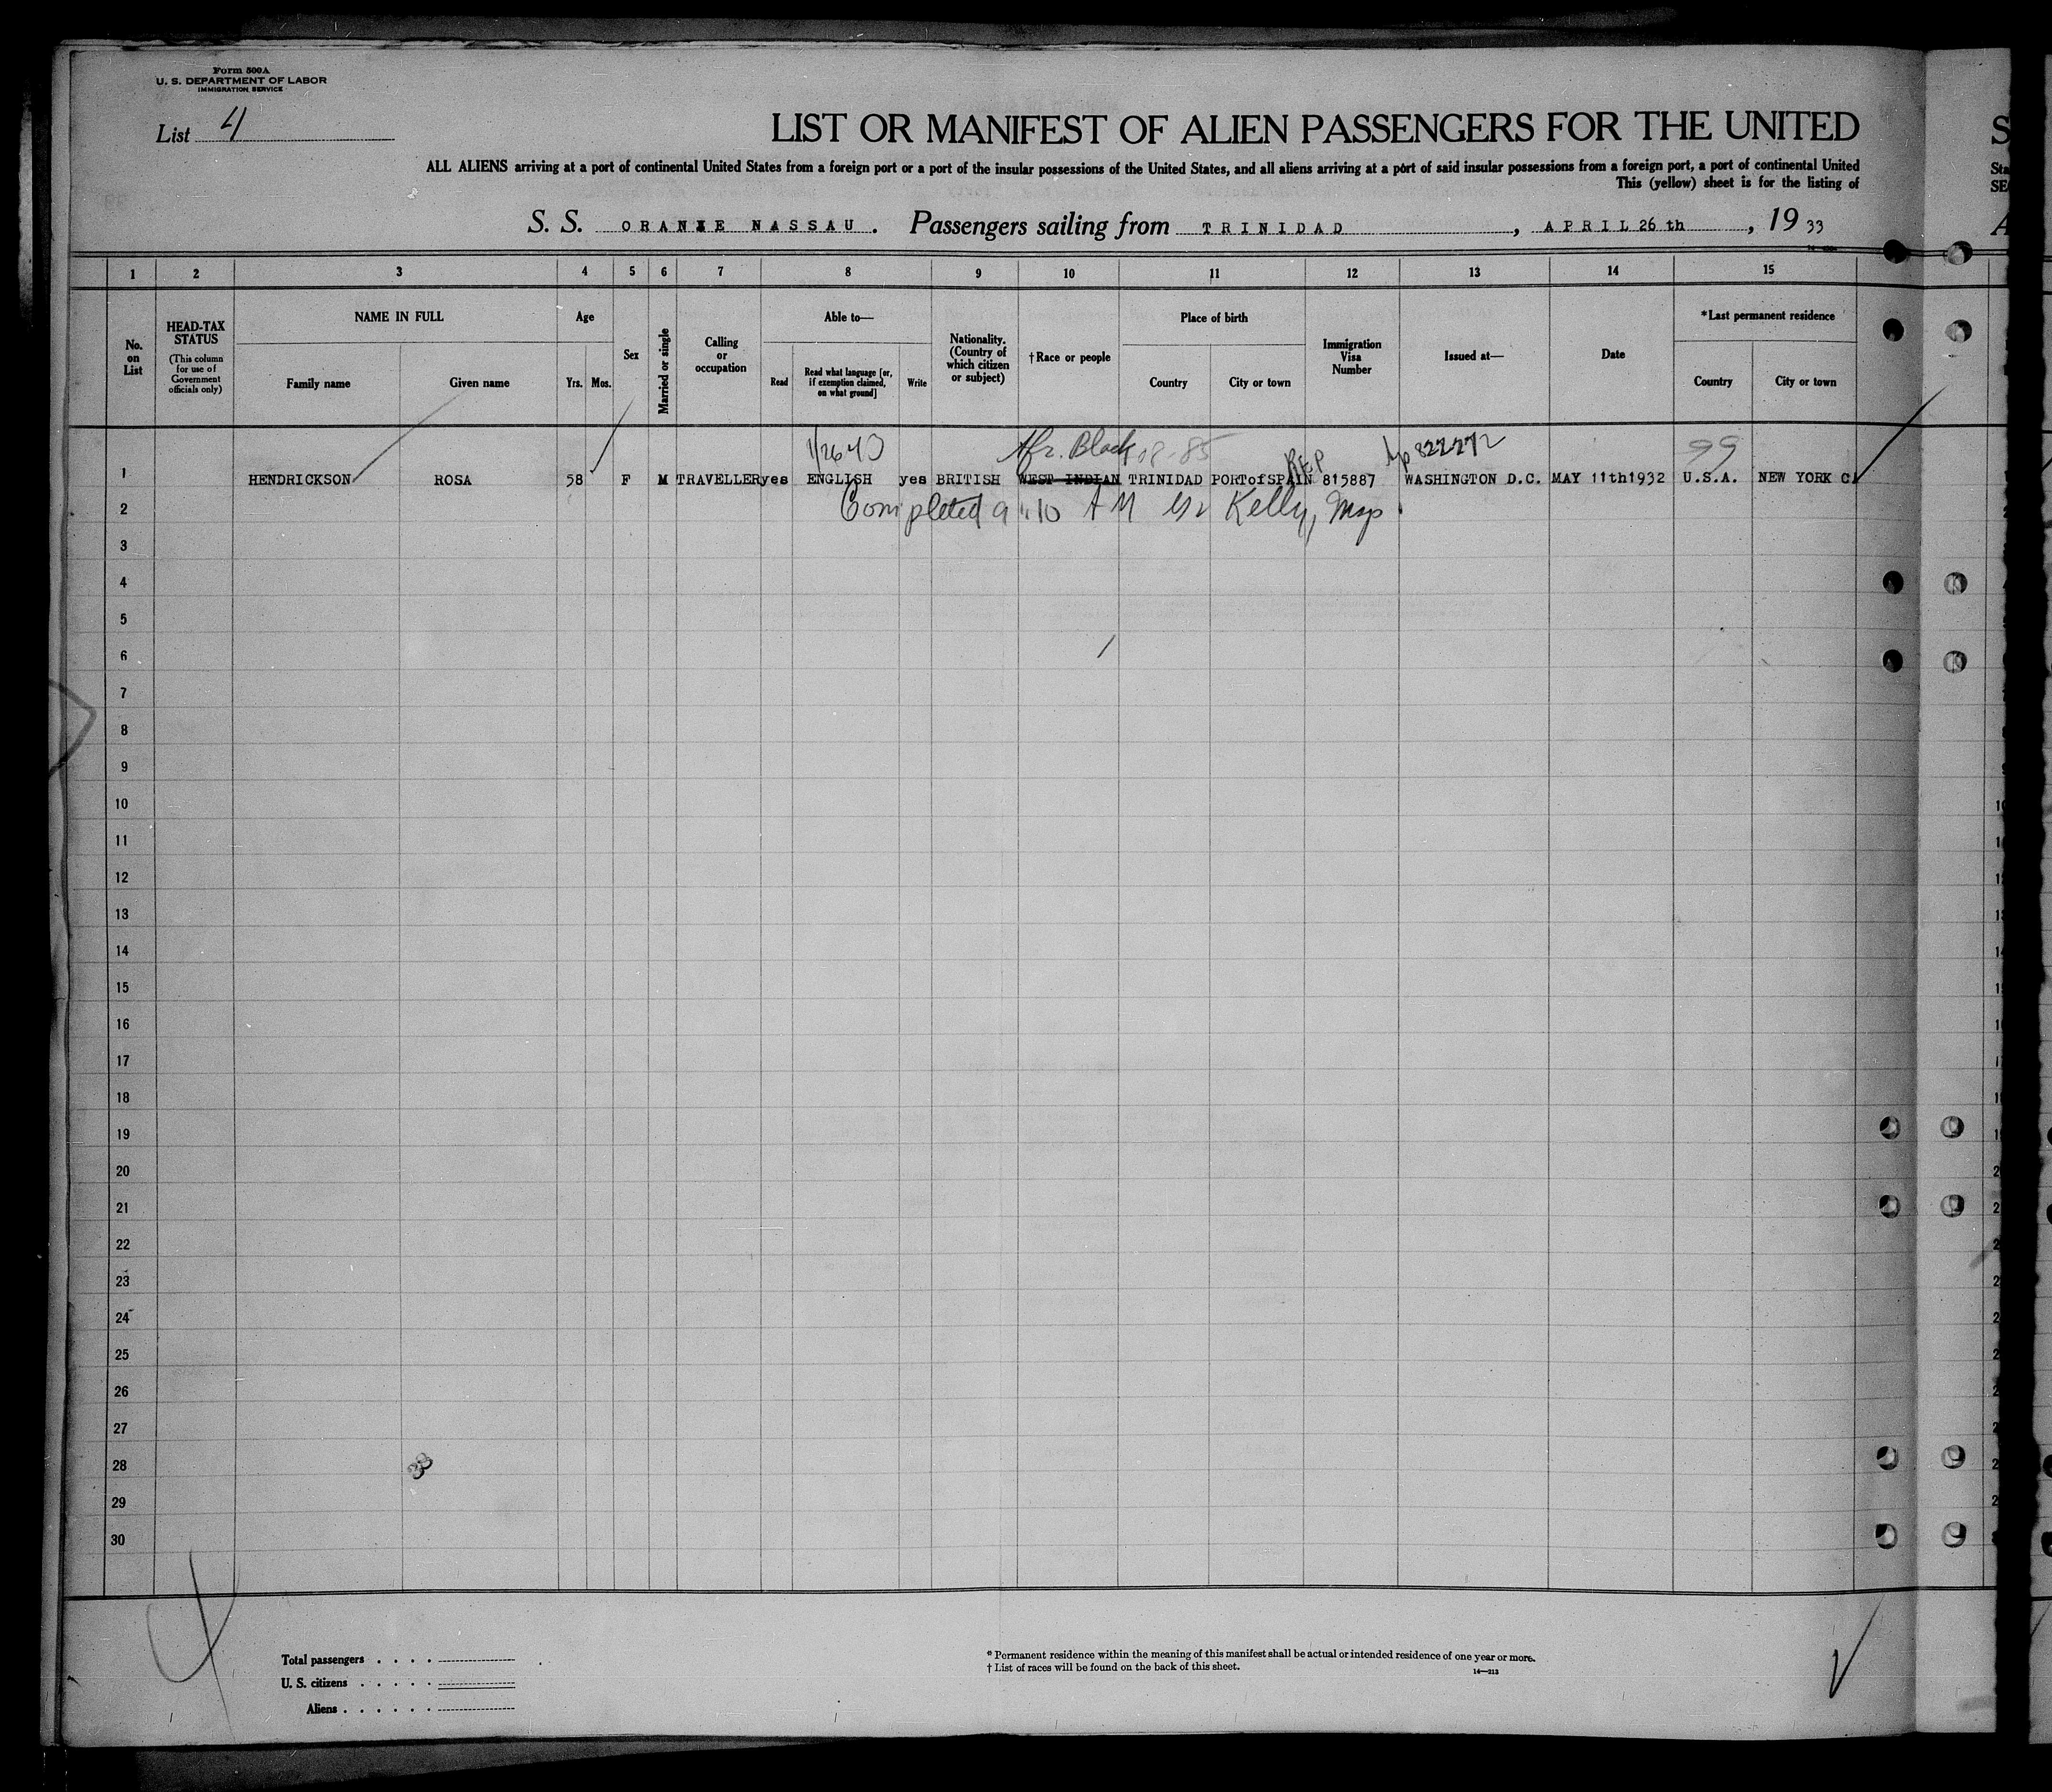 Form 500A
U. S. DEPARTMENT OF LABOR
IMMIGRATION SERVICE
List 4
LIST OR MANIFEST OF ALIEN PASSENGERS FOR THE UNITED
ALL ALIENS arriving at a port of continental United States from a foreign port or a port of the insular possessions of the United States, and all aliens arriving at a port of said insular possessions from a foreign port, a port of continental United
This (yellow) sheet is for the listing of
S. S. ORANIE NASSAU. Passengers sailing from TRINIDAD, APRIL 26 th, 19 33
1 2 3 4 5 6 7 8 9 10 11 12 13 14 15
No. on List
HEAD-TAX STATUS
(This column for use of Government officials only)
NAME IN FULL
Family name
Given name
Age
Yrs. Mos.
Sex
Married or single
Calling or occupation
Able to—
Read
Read what language [or, if exemption claimed, on what ground]
Write
Nationality. (Country of which citizen or subject)
†Race or people
Place of birth
Country
City or town
Immigration Visa Number
Issued at—
Date
*Last permanent residence
Country
City or town
Afr. Black 822272 99
1 HENDRICKSON ROSA 58 F M TRAVELLER yes ENGLISH yes BRITISH WEST INDIAN TRINIDAD PORTofSPAIN REP 815887 WASHINGTON D.C. MAY 11th1932 U.S.A. NEW YORK C
2 Completed 9 10 AM Kelly, Insp
3
4
5
6
7
8
9
10
11
12
13
14
15
16
17
18
19
20
21
22
23
24
25
26
27
28
29
30
33
Total passengers
U. S. citizens
Aliens
* Permanent residence within the meaning of this manifest shall be actual or intended residence of one year or more.
† List of races will be found on the back of this sheet.
14—213